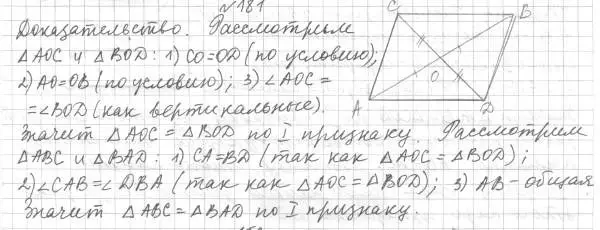 №181
Доказательство. Рассмотрим
△AOC и △BOD: 1) CO=OD (по условию);
2) AO=OB (по условию); 3) ∠AOC =
= ∠BOD (как вертикальные).
Значит △AOC = △BOD по I признаку. Рассмотрим
△ABC и △BAD: 1) CA=BD (так как △AOC = △BOD);
2) ∠CAB=∠DBA (так как △AOC = △BOD); 3) AB - общая
Значит △ABC = △BAD по I признаку.
C B
O
A D